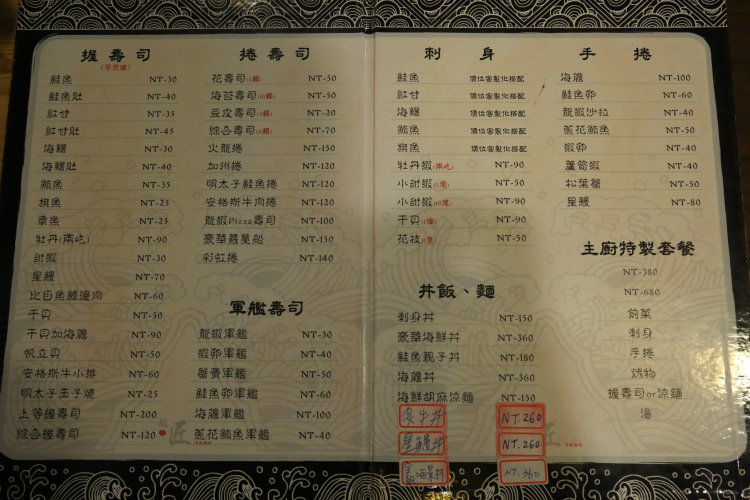 握壽司
鮭魚 NT-30
鮭魚肚 NT-40
紅甘 NT-35
紅甘肚 NT-45
海鱺 NT-30
海鱺肚 NT-40
鮪魚 NT-35
旗魚 NT-25
章魚 NT-25
牡丹(兩吃) NT-90
甜蝦 NT-30
星鰻 NT-70
比目魚鰭邊肉 NT-60
干貝 NT-50
干貝加海膽 NT-90
帆立貝 NT-50
安格斯牛小排 NT-60
明太子玉子燒 NT-25
上等握壽司 NT-200
綜合握壽司 NT-120
捲壽司
花壽司 NT-50
海苔壽司 NT-50
豆皮壽司 NT-20
綜合壽司 NT-70
火龍捲 NT-150
加州捲 NT-120
明太子鮭魚捲 NT-120
安格斯牛肉捲 NT-120
龍蝦Pizza壽司 NT-100
豪華蘿蔓船 NT-150
彩虹捲 NT-140
軍艦壽司
龍蝦軍艦 NT-30
蝦卵軍艦 NT-40
蟹膏軍艦 NT-50
鮭魚卵軍艦 NT-60
海膽軍艦 NT-100
蔥花鮪魚軍艦 NT-40
刺身
鮭魚 價位客製化搭配
紅甘 價位客製化搭配
海鱺 價位客製化搭配
鮪魚 價位客製化搭配
旗魚 價位客製化搭配
牡丹蝦(兩吃) NT-90
小甜蝦 NT-50
小甜蝦 NT-90
干貝 NT-90
花枝 NT-50
丼飯、麵
刺身丼 NT-150
豪華海鮮丼 NT-360
鮭魚親子丼 NT-180
海膽丼 NT-360
海鮮胡麻涼麵 NT-150
炙牛丼 NT.260
星鰻丼 NT-260
NT-360
手捲
海膽 NT-100
鮭魚卵 NT-60
龍蝦沙拉 NT-40
蔥花鮪魚 NT-50
蝦卵 NT-40
蘆筍蝦 NT-40
松葉蟹 NT-50
星鰻 NT-80
主廚特製套餐
NT-380
NT-680
前菜
刺身
手捲
烤物
握壽司or涼麵
湯